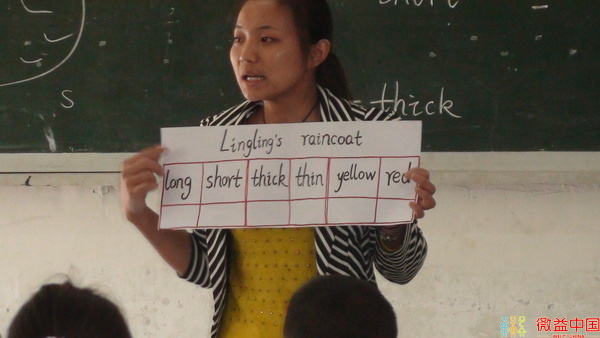 short
thick
s
Lingling's raincoat
long short thick thin yellow red
微益中国